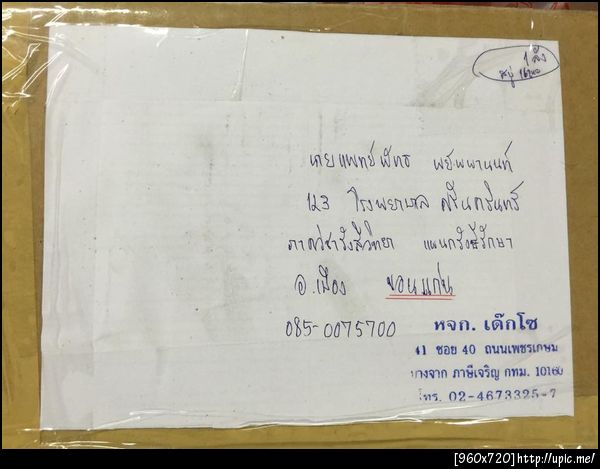 1 ลัง
สบู่
นายแพทย์ พัทธ พยัพพานนท์
123 โรงพยาบาล ศรีนครินทร์
ภาควิชารังสีวิทยา แผนกรังสีรักษา
อ.เมือง ขอนแก่น
085-0075700
หจก. เด๊กโซ
41 ซอย 40 ถนนเพชรเกษม
บางจาก ภาษีเจริญ กทม. 10160
โทร. 02-4673325-7
[960x720]http://upic.me/